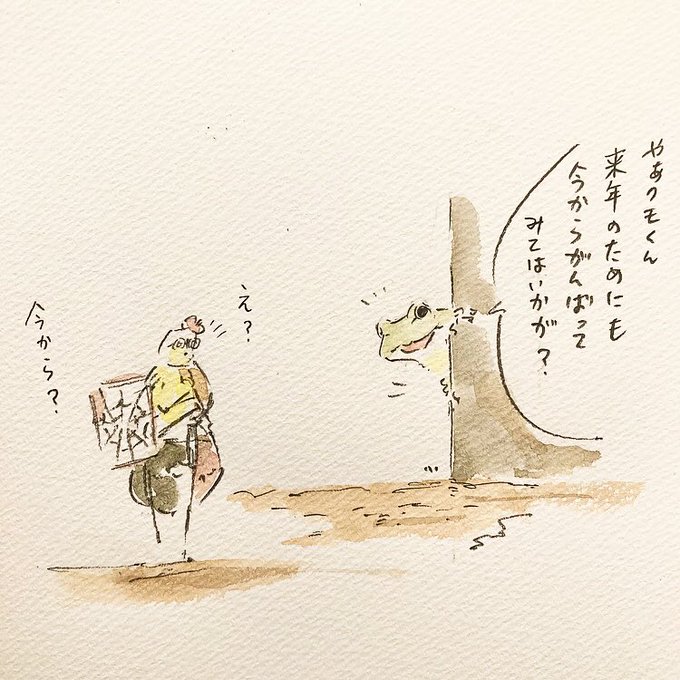 やあクモくん
来年のためにも
今からがんばって
みてはいかが？
え？
今から？